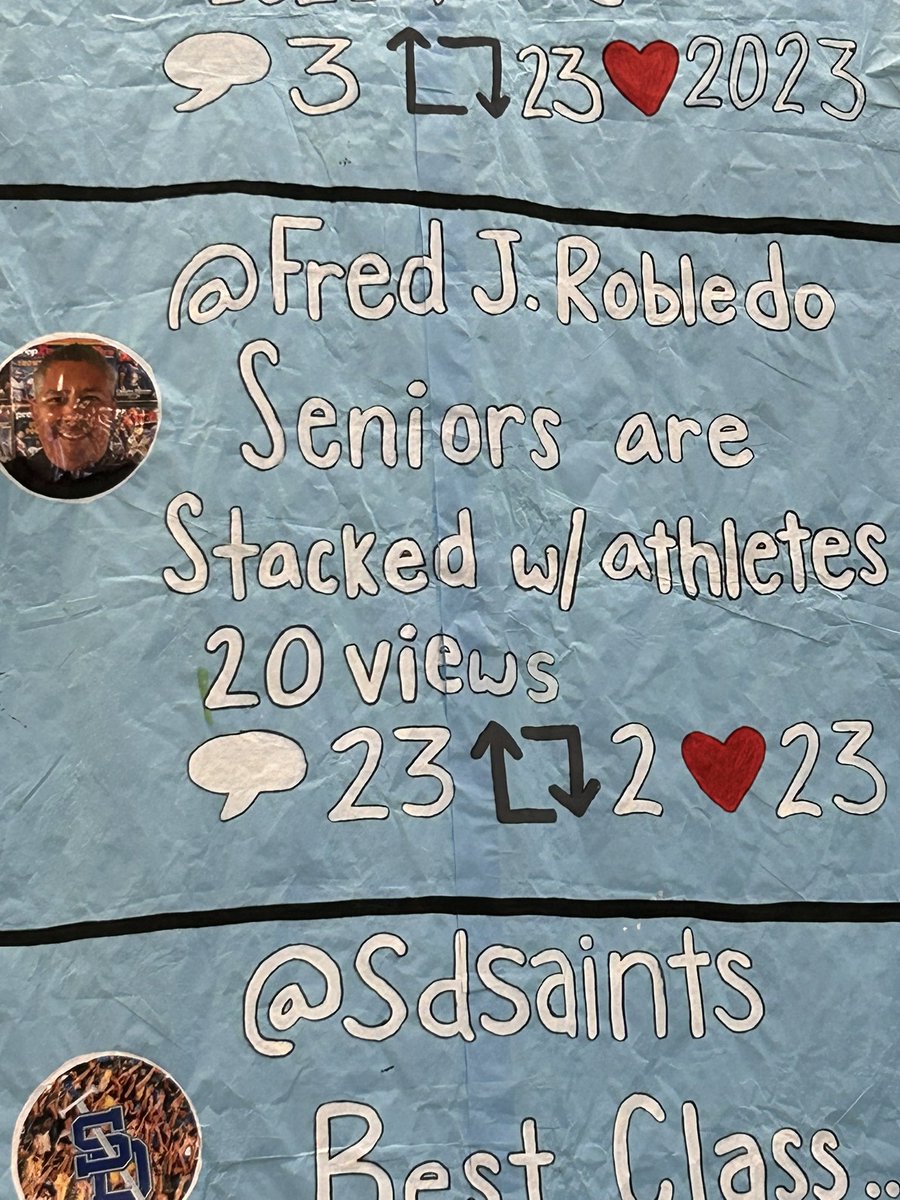 3 23 2023
@Fred J. Robledo
Seniors are
Stacked w/ athletes
20 views
23 2 23
@Sdsaints
SD
Best Class...